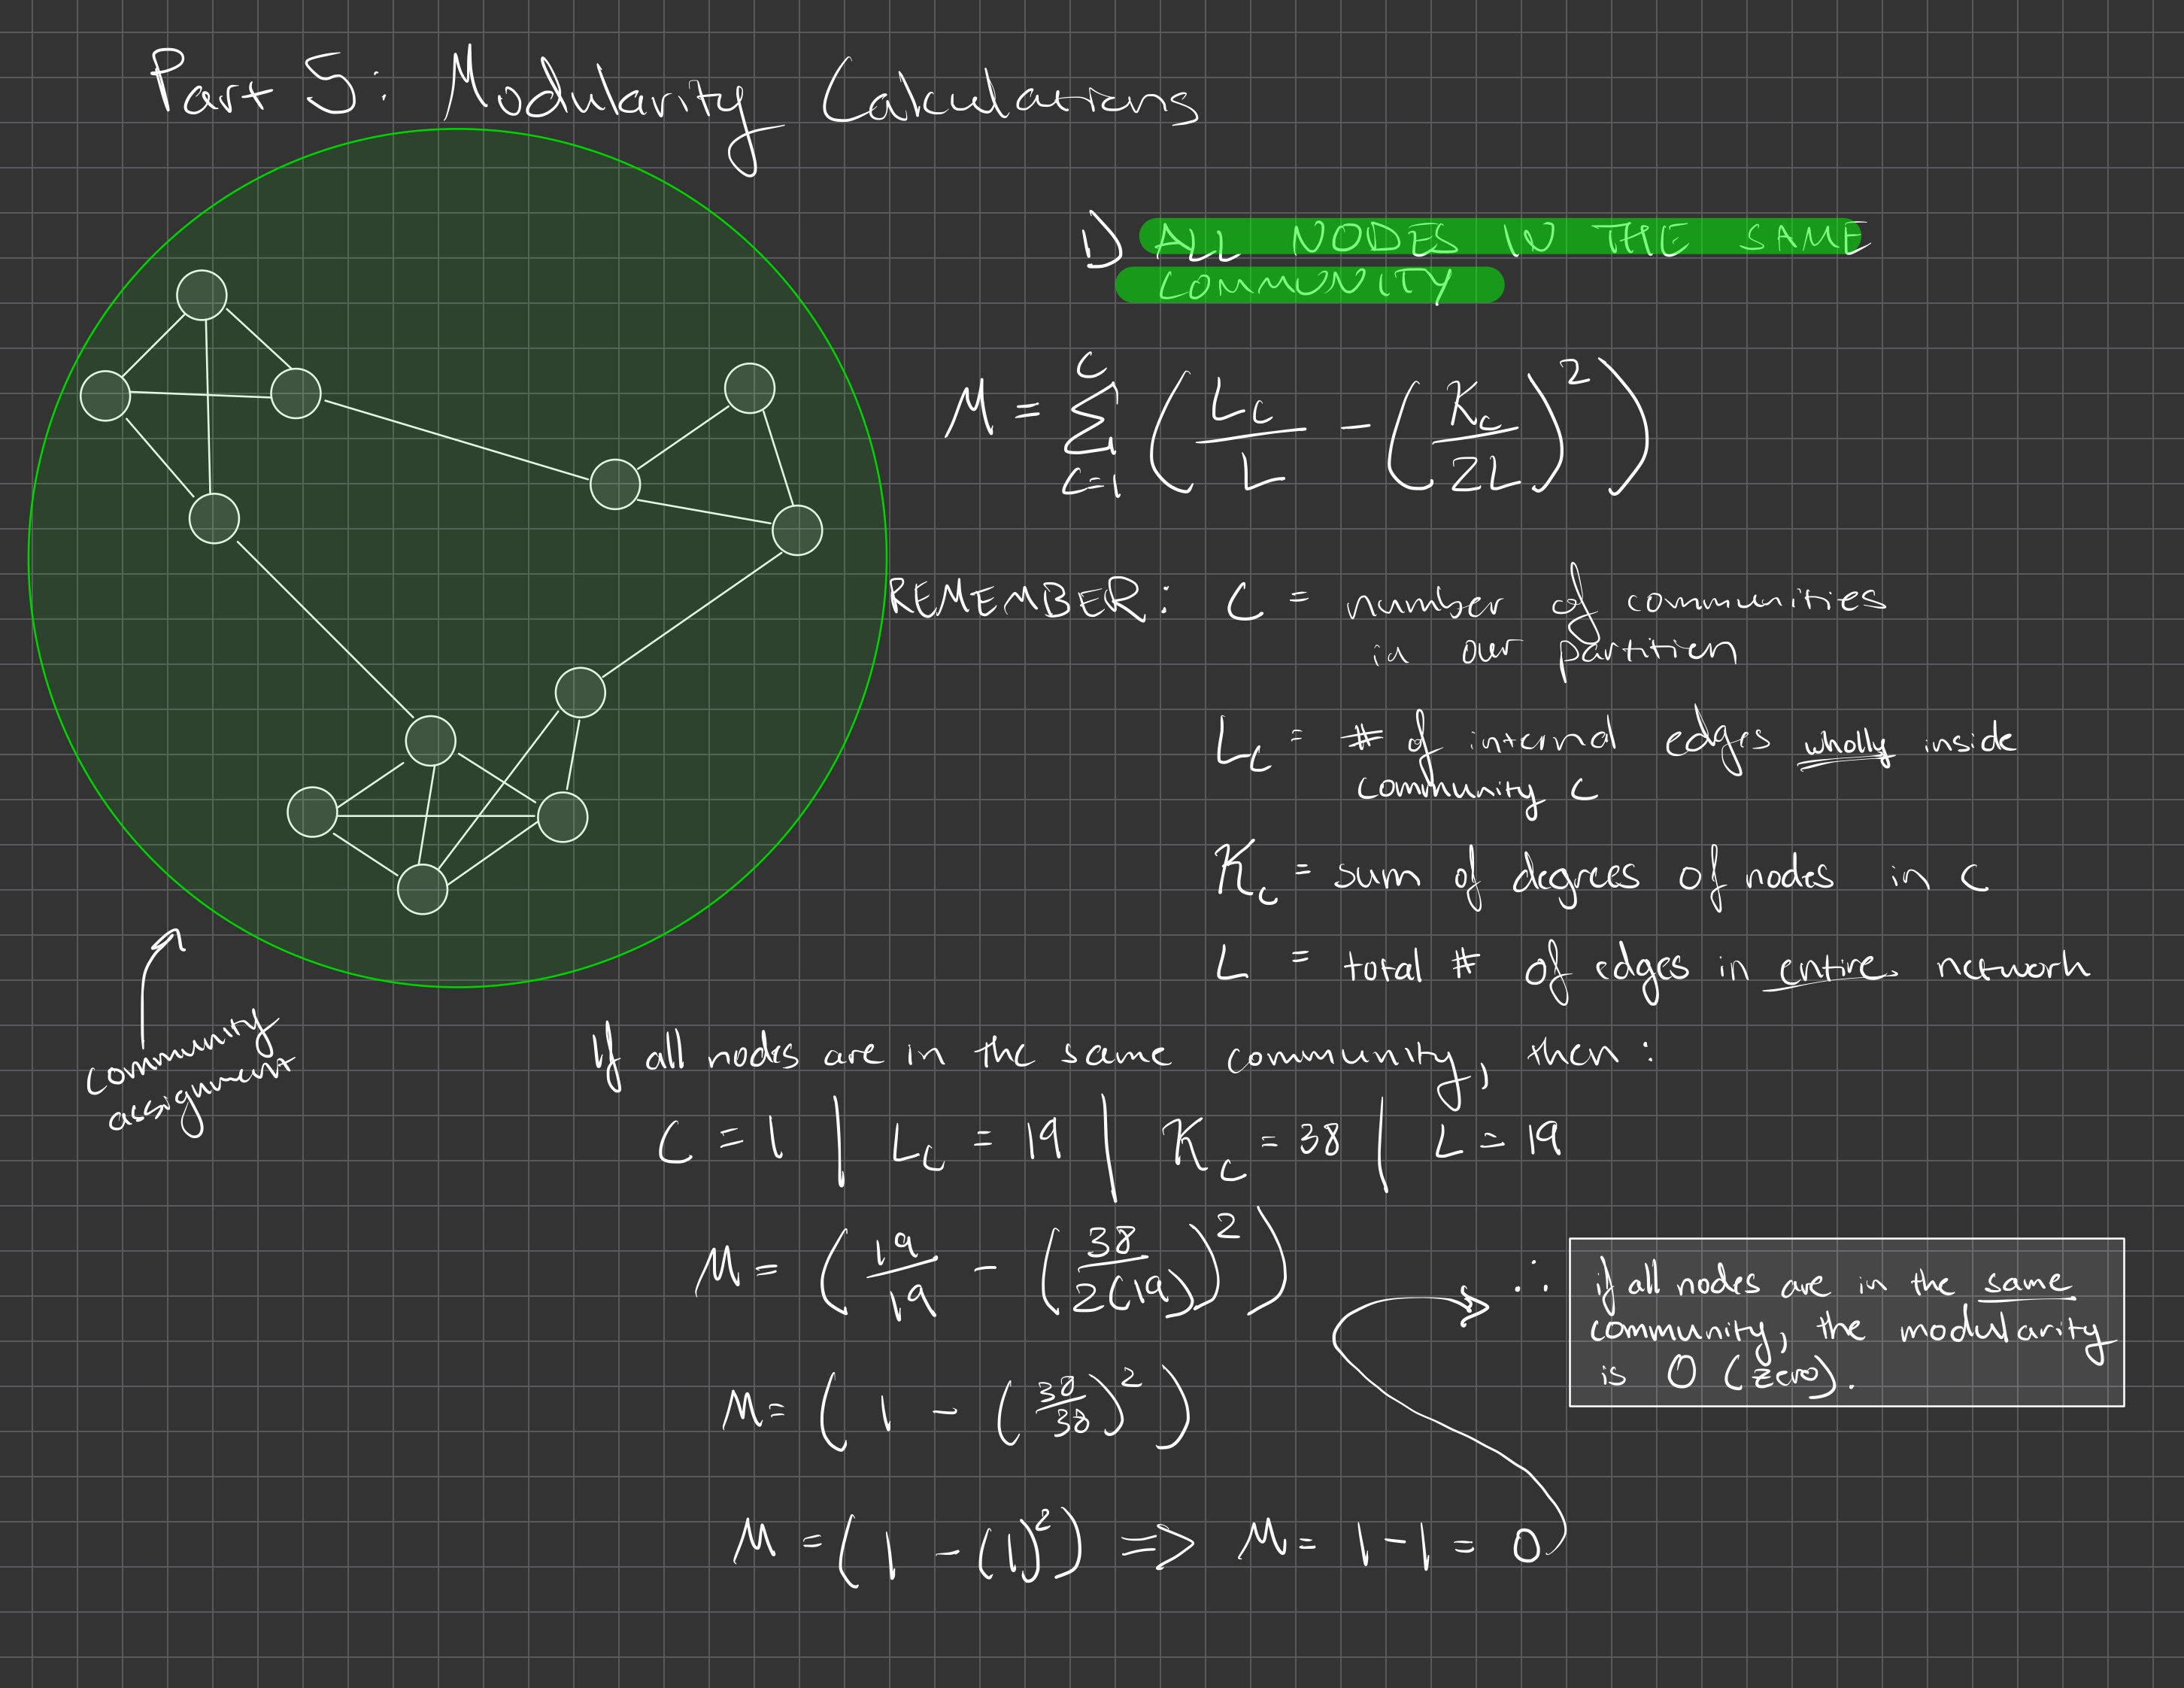 Part 5: Modularity Calculations
1) ALL NODES IN THE SAME
COMMUNITY
M = C∑c=1 (Lc/L - (Kc/2L)²)
REMEMBER: C = number of communities
in our partition
Lc = # of internal edges wholly inside
community c
Kc = sum of degrees of nodes in c
L = total # of edges in entire network
community
assignment
If all nodes are in the same community, then:
C = 1 | Lc = 19 | Kc = 38 | L = 19
M = (19/19 - (38/2(19))²)
M = (1 - (38/38)²)
M = (1 - (1)²) => M = 1 - 1 = 0
∴ if all nodes are in the same
community, the modularity
is 0 (zero).